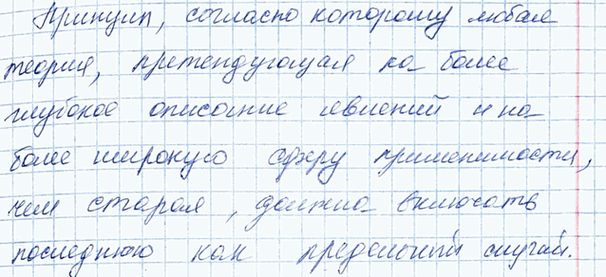 Принцип, согласно которому любая
теория, претендующая на более
глубокое описание явлений и на
более широкую сферу применимости,
чем старая, должна включать
последнюю как предельный случай.